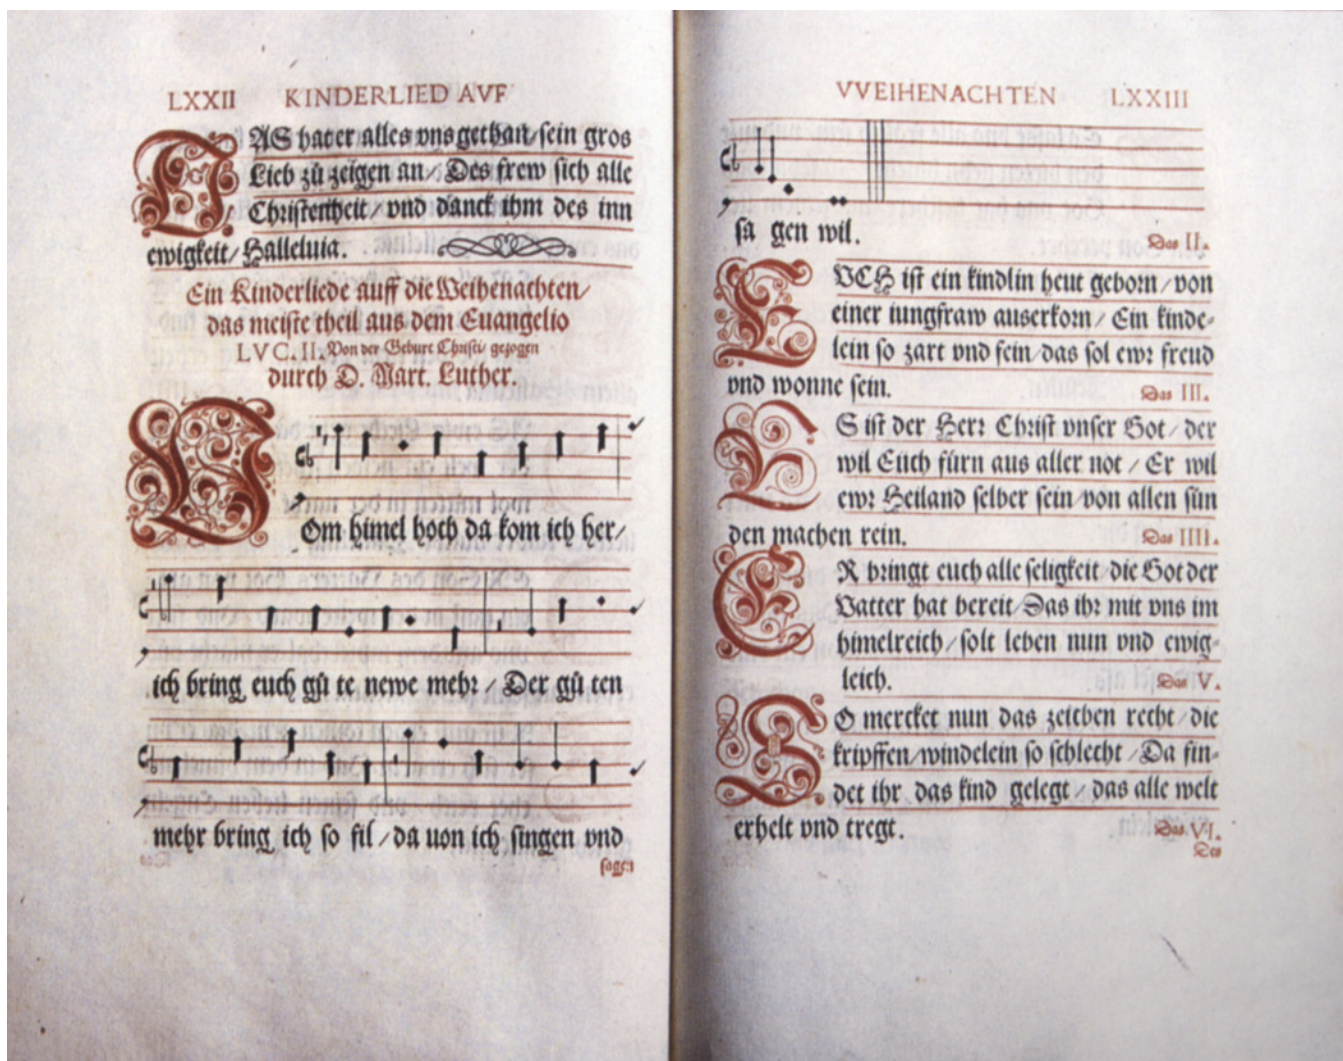 LXXII KINDERLIED AVF
DAS hat er alles vns gethan/sein gros
Lieb zů zeigen an/Des frew sich alle
Christenheit/vnd danck ihm des inn
ewigkeit/Halleluia.
Ein Kinderliede auff die Weihenachten/
das meiste theil aus dem Euangelio
LVC. II. Von der Geburt Christi/gezogen
durch D. Mart. Luther.
VOm himel hoch da kom ich her/
ich bring euch gů te newe mehr/Der gů ten
mehr bring ich so fil/da uon ich singen vnd
sagen
VVEIHENACHTEN LXXIII
sa gen wil. Das II.
EVCH ist ein kindlin heut geborn/von
einer iungfraw auserkorn/Ein kinde-
lein so zart vnd fein/das sol ewr freud
vnd wonne sein. Das III.
ES ist der Herr Christ vnser Got/der
wil Euch fürn aus aller not/Er wil
ewr Heiland selber sein/von allen sün
den machen rein. Das IIII.
ER bringt euch alle seligkeit/die Got der
Vatter hat bereit/Das ihr mit vns im
himelreich/solt leben nun vnd ewig-
leich. Das V.
SO mercket nun das zeichen recht/die
kripffen/windelein so schlecht/Da fin-
det ihr das kind gelegt/das alle welt
erhelt vnd tregt. Das VI.
Des